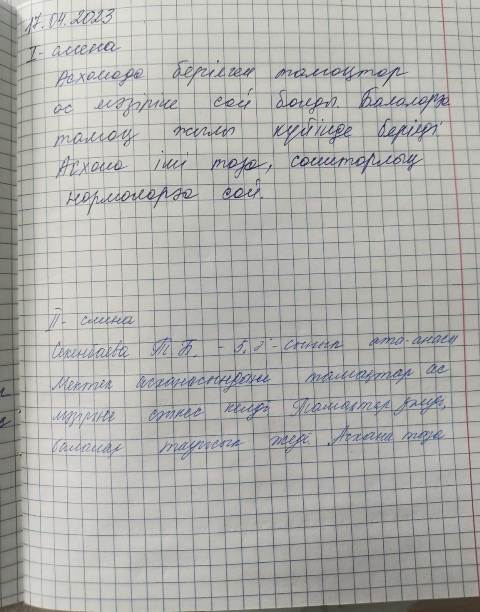 17.04.2023
I - смена
Асханада берілген тамақтар
ас мәзіріне сай болды. Балаларға
тамақ жылы күйінде беріледі.
Асхана іші таза, санитарлық
нормаларға сай.
II - смена
Секенбаева Т.Б. - 5, - сынып ата-анасы
Мектеп асханасындағы тамақтар ас
мәзіріне сәйкес келді. Тамақтар
балалар тауысып жеді. Асхана таза